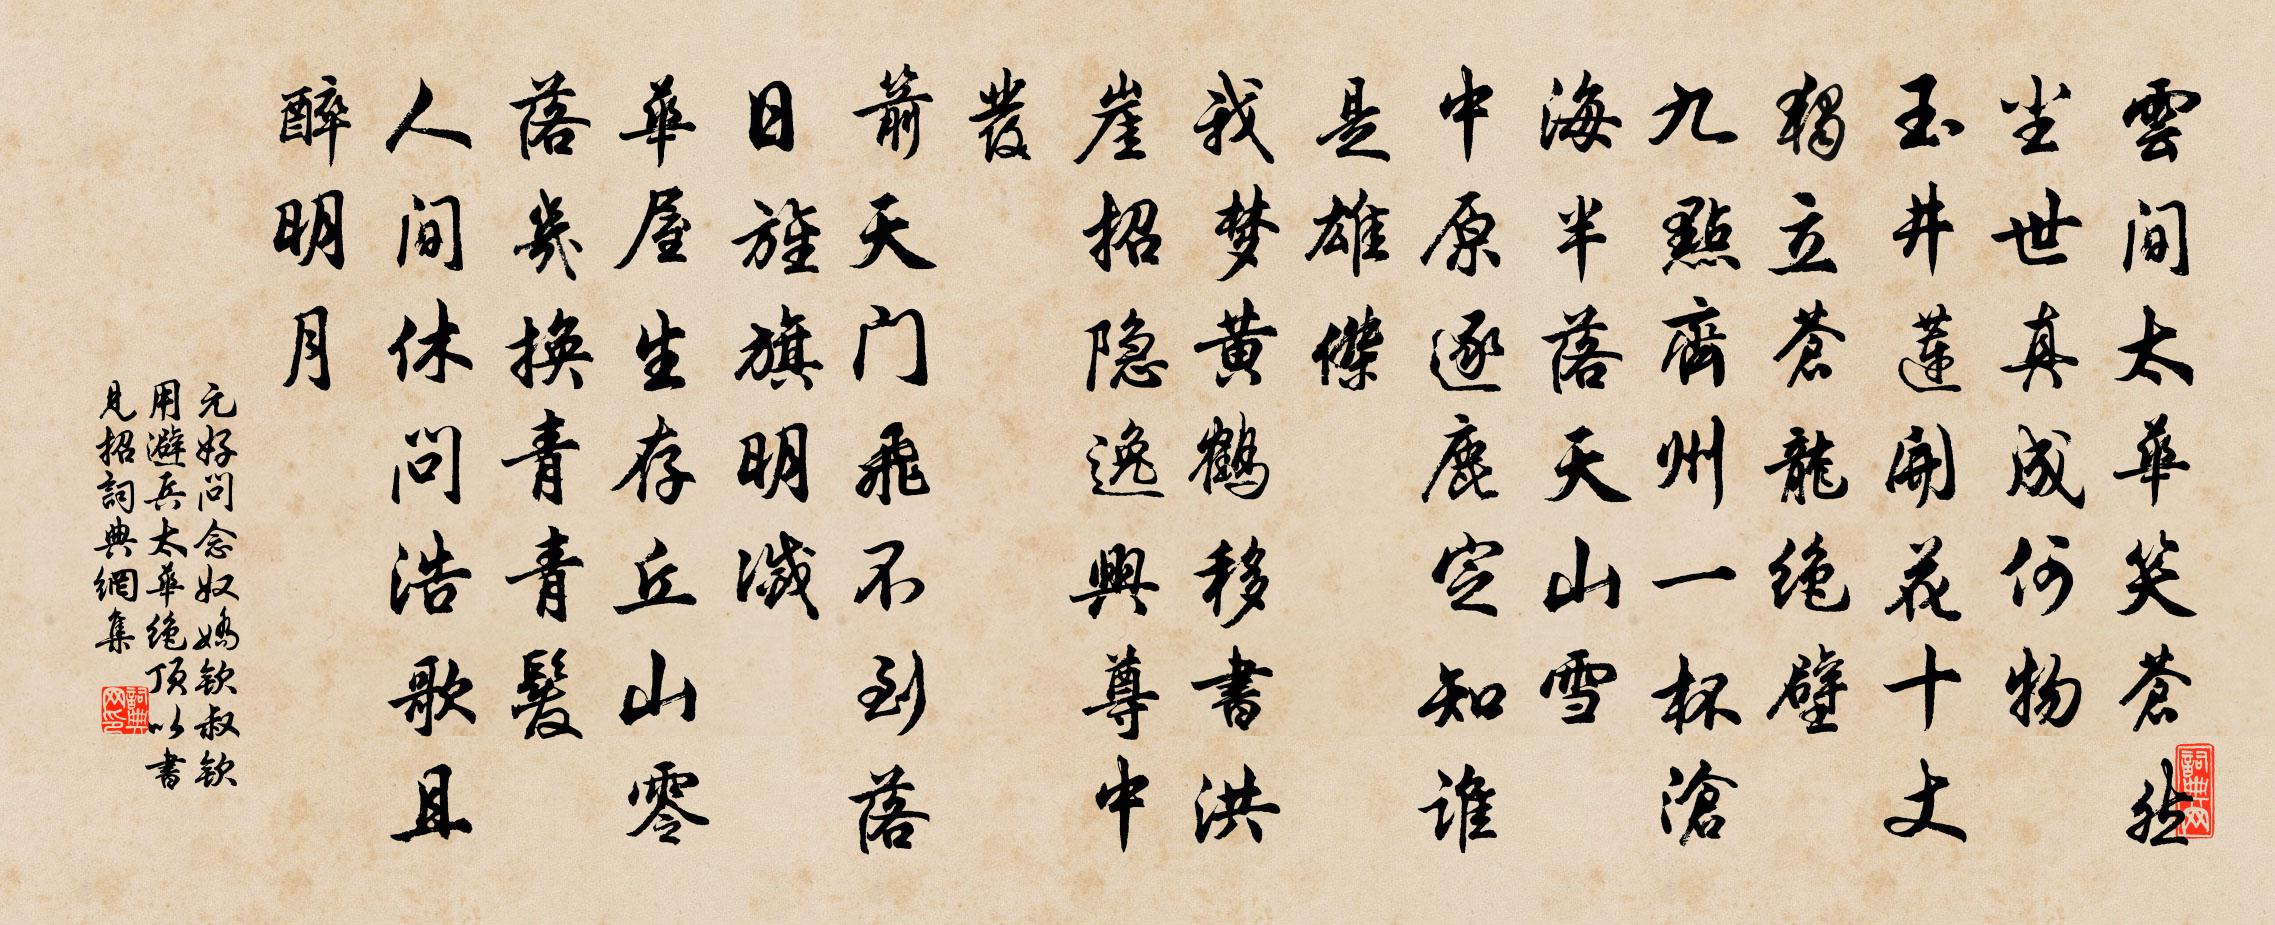 雲间太華笑蒼然
尘世真成何物
玉井蓮開花十丈
獨立蒼龍绝壁
九點齊州一杯滄
海半落天山雪
中原逐鹿定知谁
是雄傑
我梦黄鶴移書洪
崖招隐逸興尊中
發
箭天门飛不到落
日旌旗明滅
華屋生存丘山零
落幾換青青髮
人间休问浩歌且
醉明月
元好问念奴嬌钦叔钦
用避兵太華绝頂以書
見招詞典網集
詞典网
詞典网印